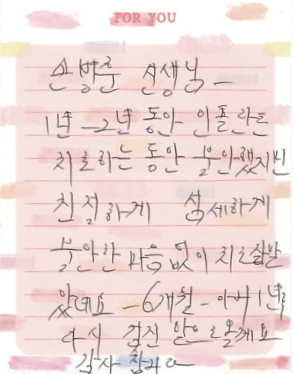 FOR YOU
손병준 선생님 -
1년 - 2년 동안 인플란트
치료하는 동안 불안했지만
친절하게 섬세하게
불안한 마음없이 치료잘받
았네요 - 6개월 - 아버 1년후
다시 검진 받으로올께요
감사합니다